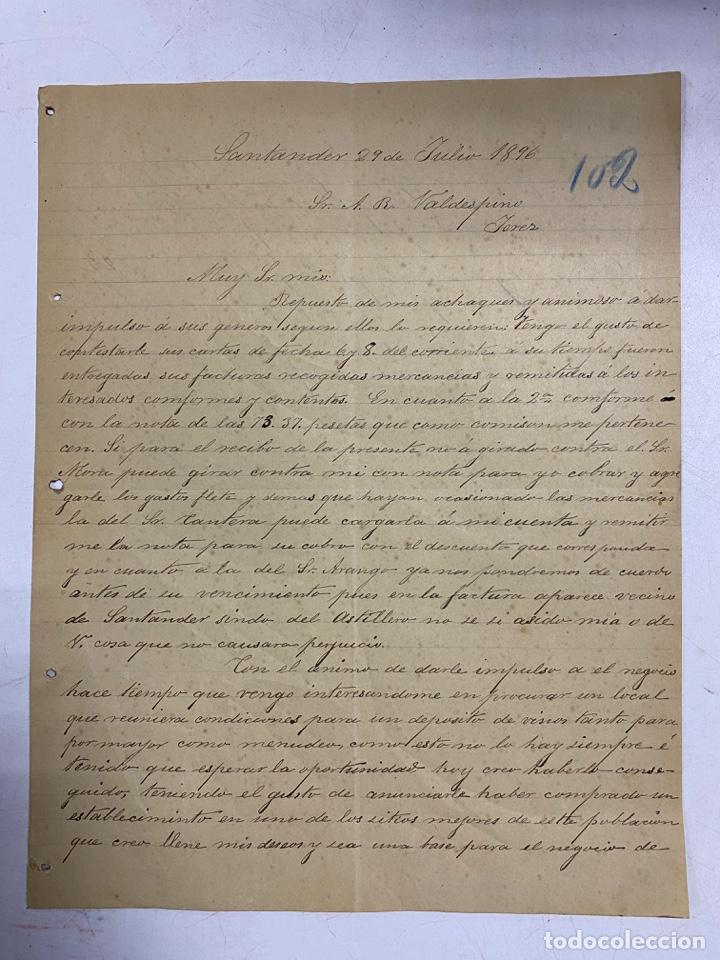 Santander 29 de Julio 1896
102
Sr. A. R. Valdespino
Jerez
Muy Sr. mio:
Repuesto de mis achaques y animoso a dar
impulso á sus generos segun ellos lo requieren; tengo el gusto de
contestarle sus cartas de fecha 6 y 8. del corriente, á su tiempo fueron
entregadas sus facturas recogidas mercancias y remitidas á los in
teresados comformes y contentos. En cuanto a la 2ª comforme
con la nota de las 73.37. pesetas que como comison me pertene
cen. Si para el recibo de la presente no á girado contra el Sr.
Mora puede girar contra mi con nota para yo cobrar y agre
garle los gastos flete y demas que hayan ocasionado las mercancias
la del Sr. Cantera puede cargarla á mi cuenta y remitir
me la nota para su cobro con el descuento que corresponda
y en cuanto á la del Sr. Arango ya nos pondremos de cuerdo
antes de su vencimiento pues en la factura aparece vecino
de Santander sindo del Astillero no se si asido mia o de
V. cosa que no causara perjuicio.
Con el ánimo de darle impulso a el negocio
hace tiempo que vengo interesandome en procurar un local
que reuniera condiciones para un deposito de vinos tanto para
por mayor como menudeo, como esto no lo hay siempre é
tenido que esperar la oportunidad hoy creo haberlo conse-
guido, teniendo el gusto de anunciarle haber comprado un
establecimiento en uno de los sitios mejores de esta población
que creo llene mis deseos y sea una base para el negocio de
todocoleccion.net